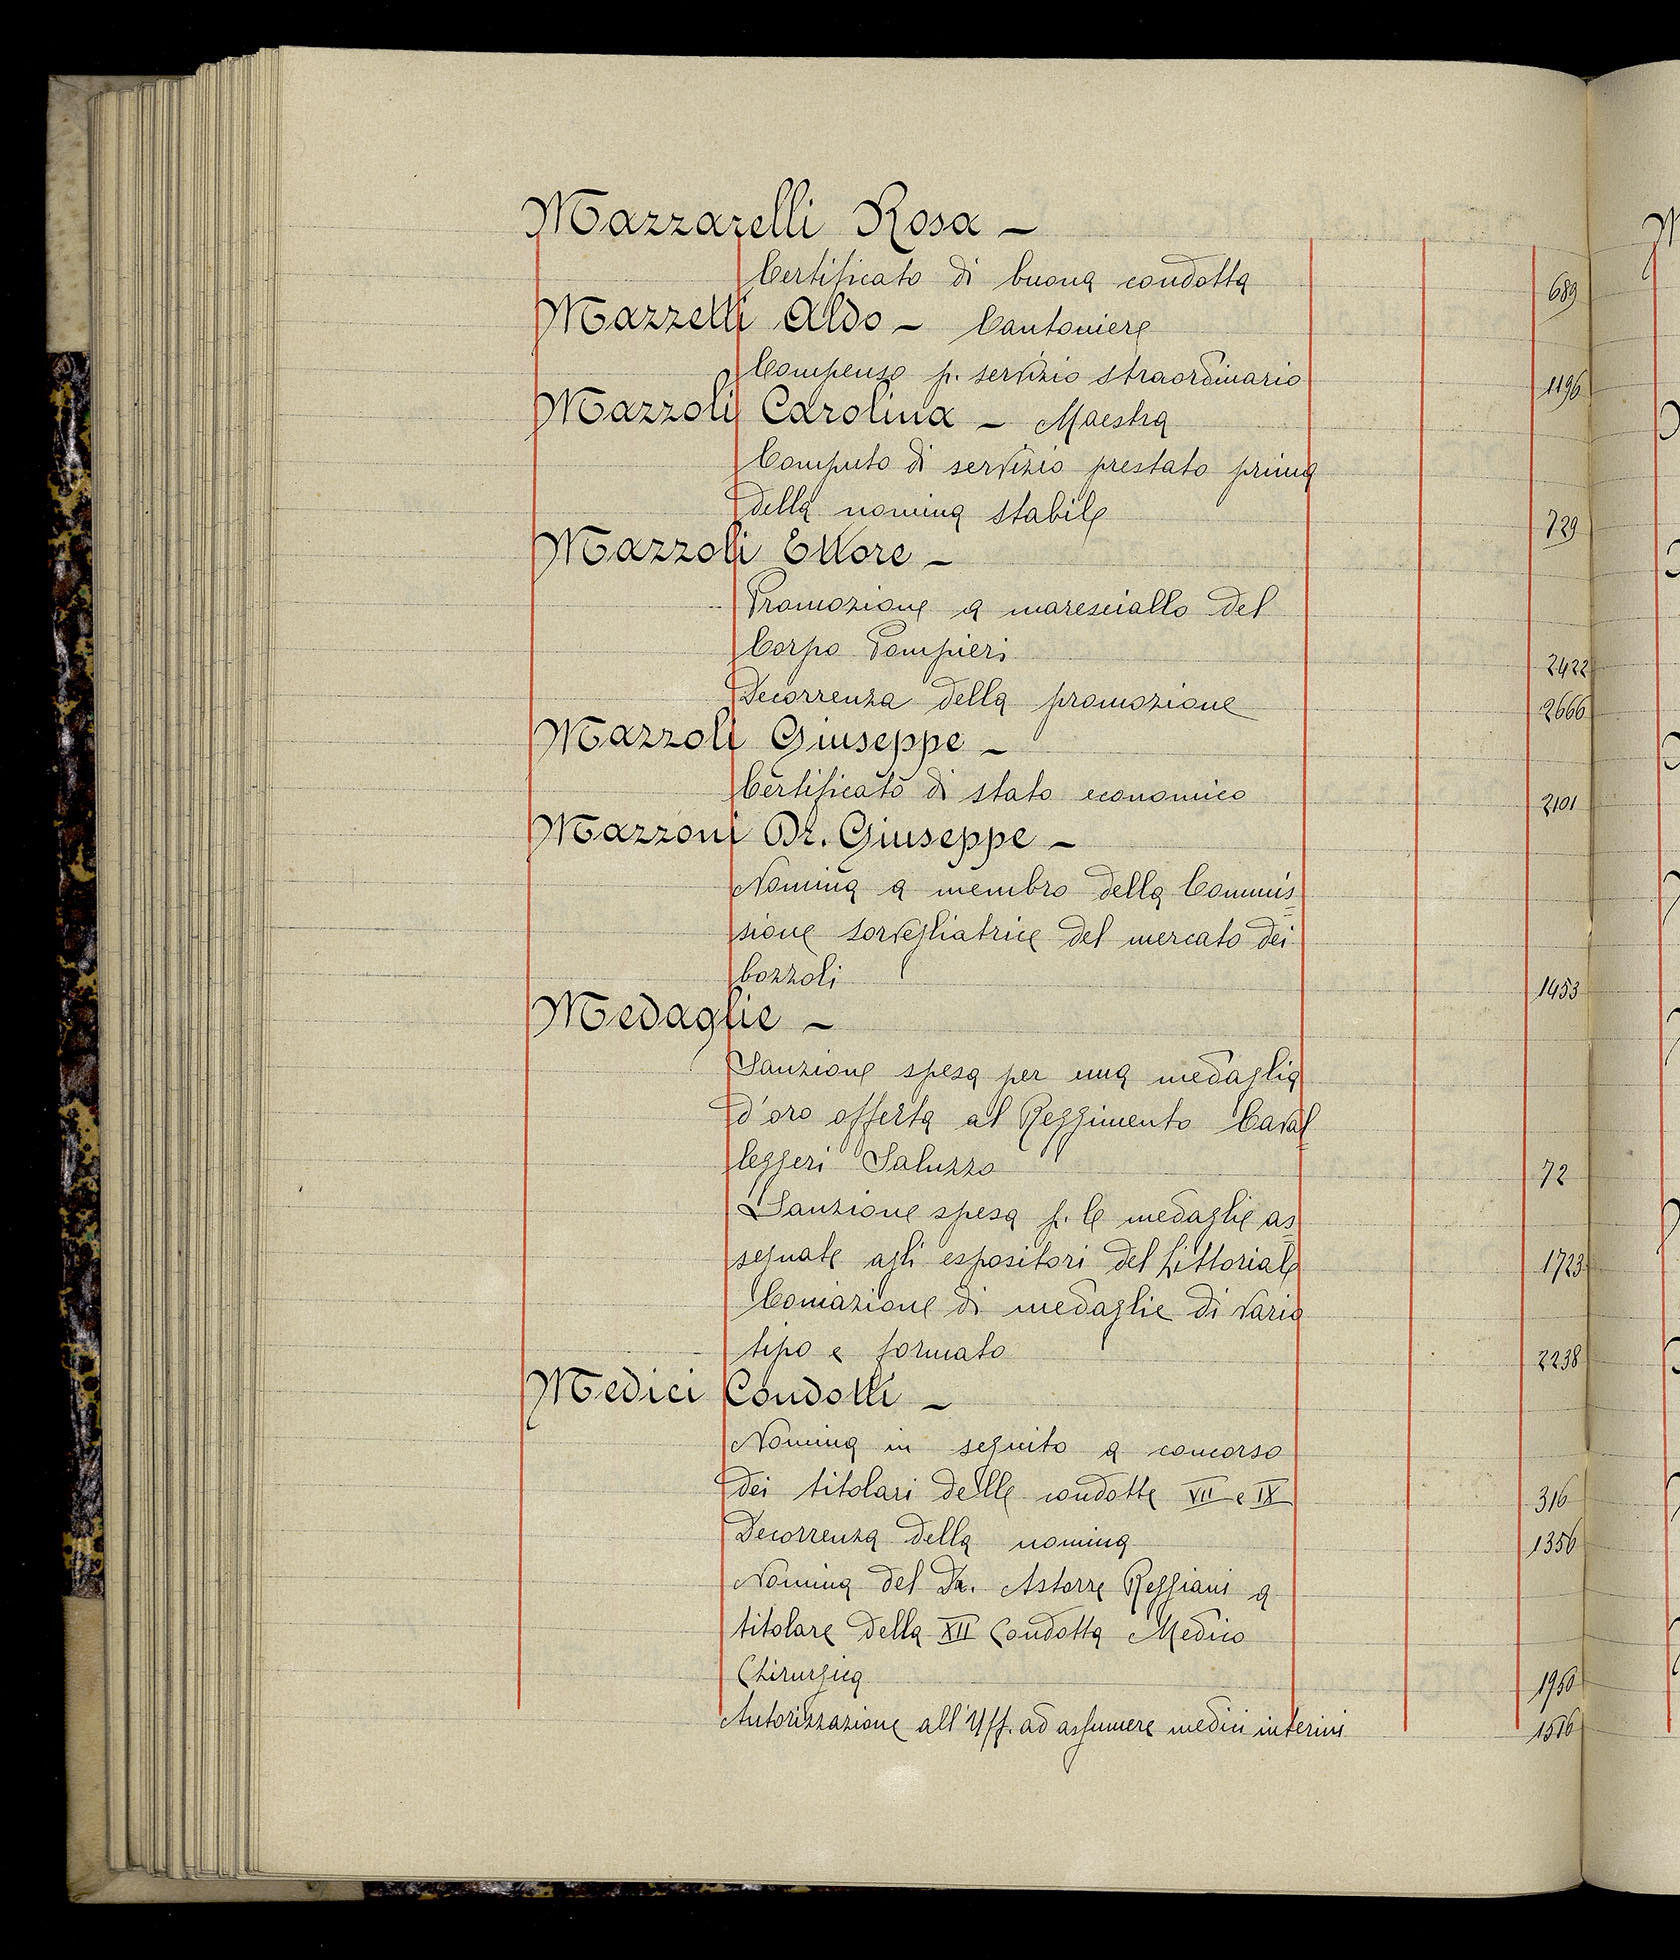 Mazzarelli Rosa –
Certificato di buona condotta 689
Mazzetti Aldo – Cantoniere
Compenso p. servizio straordinario 1196
Mazzoli Carolina – Maestra
Computo di servizio prestato prima
della nomina stabile 729
Mazzoli Ettore –
Promozione a maresciallo del
Corpo Pompieri 2422
Decorrenza della promozione 2666
Mazzoli Giuseppe –
Certificato di stato economico 2101
Mazzoni Dr. Giuseppe –
Nomina a membro della Commis=
sione sorvegliatrice del mercato dei
bozzoli 1453
Medaglie –
Sanzione spesa per una medaglia
d'oro offerta al Reggimento Caval=
leggeri Saluzzo 72
Sanzione spesa p. le medaglie as=
segnate agli espositori del Littoriale 1723
Coniazione di medaglie di vario
tipo e formato 2238
Medici Condotti –
Nomina in seguito a concorso
dei titolari delle condotte VII e IX 316
Decorrenza della nomina 1356
Nomina del Dr. Astorre Reggiani a
titolare della XII Condotta Medico
Chirurgica 1950
Autorizzazione all'Uff. ad assumere medici interini 1516